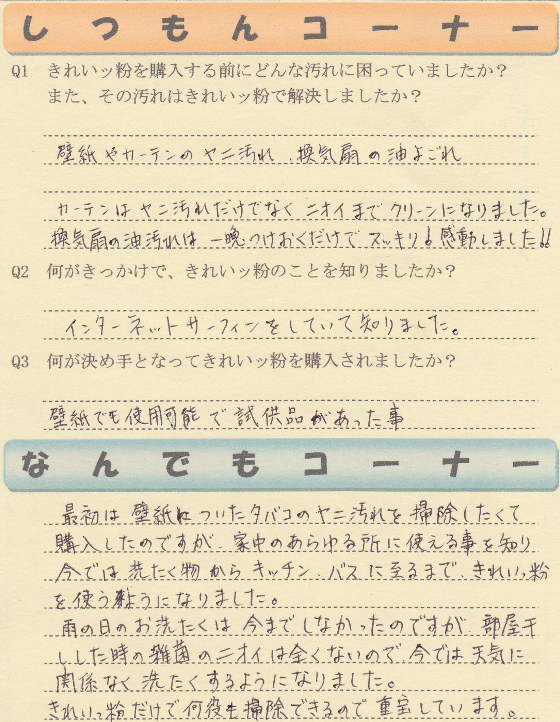 しつもんコーナー
Q1 きれいッ粉を購入する前にどんな汚れに困っていましたか?
また、その汚れはきれいッ粉で解決しましたか?
壁紙やカーテンのヤニ汚れ、換気扇の油よごれ
カーテンはヤニ汚れだけでなくニオイまでクリーンになりました。
換気扇の油汚れは一晩つけおくだけでスッキリ!感動しました!!
Q2 何がきっかけで、きれいッ粉のことを知りましたか?
インターネットサーフィンをしていて知りました。
Q3 何が決め手となってきれいッ粉を購入されましたか?
壁紙でも使用可能で試供品があった事
なんでもコーナー
最初は壁紙についたタバコのヤニ汚れを掃除したくて
購入したのですが、家中のあらゆる所に使える事を知り
今では洗たく物からキッチン、バスに至るまで、きれいっ粉
を使うようになりました。
雨の日のお洗たくは今までしなかったのですが、部屋干
しした時の雑菌のニオイは全くないので、今では天気に
関係なく洗たくするようになりました。
きれいっ粉だけで何役も掃除できるので重宝しています。